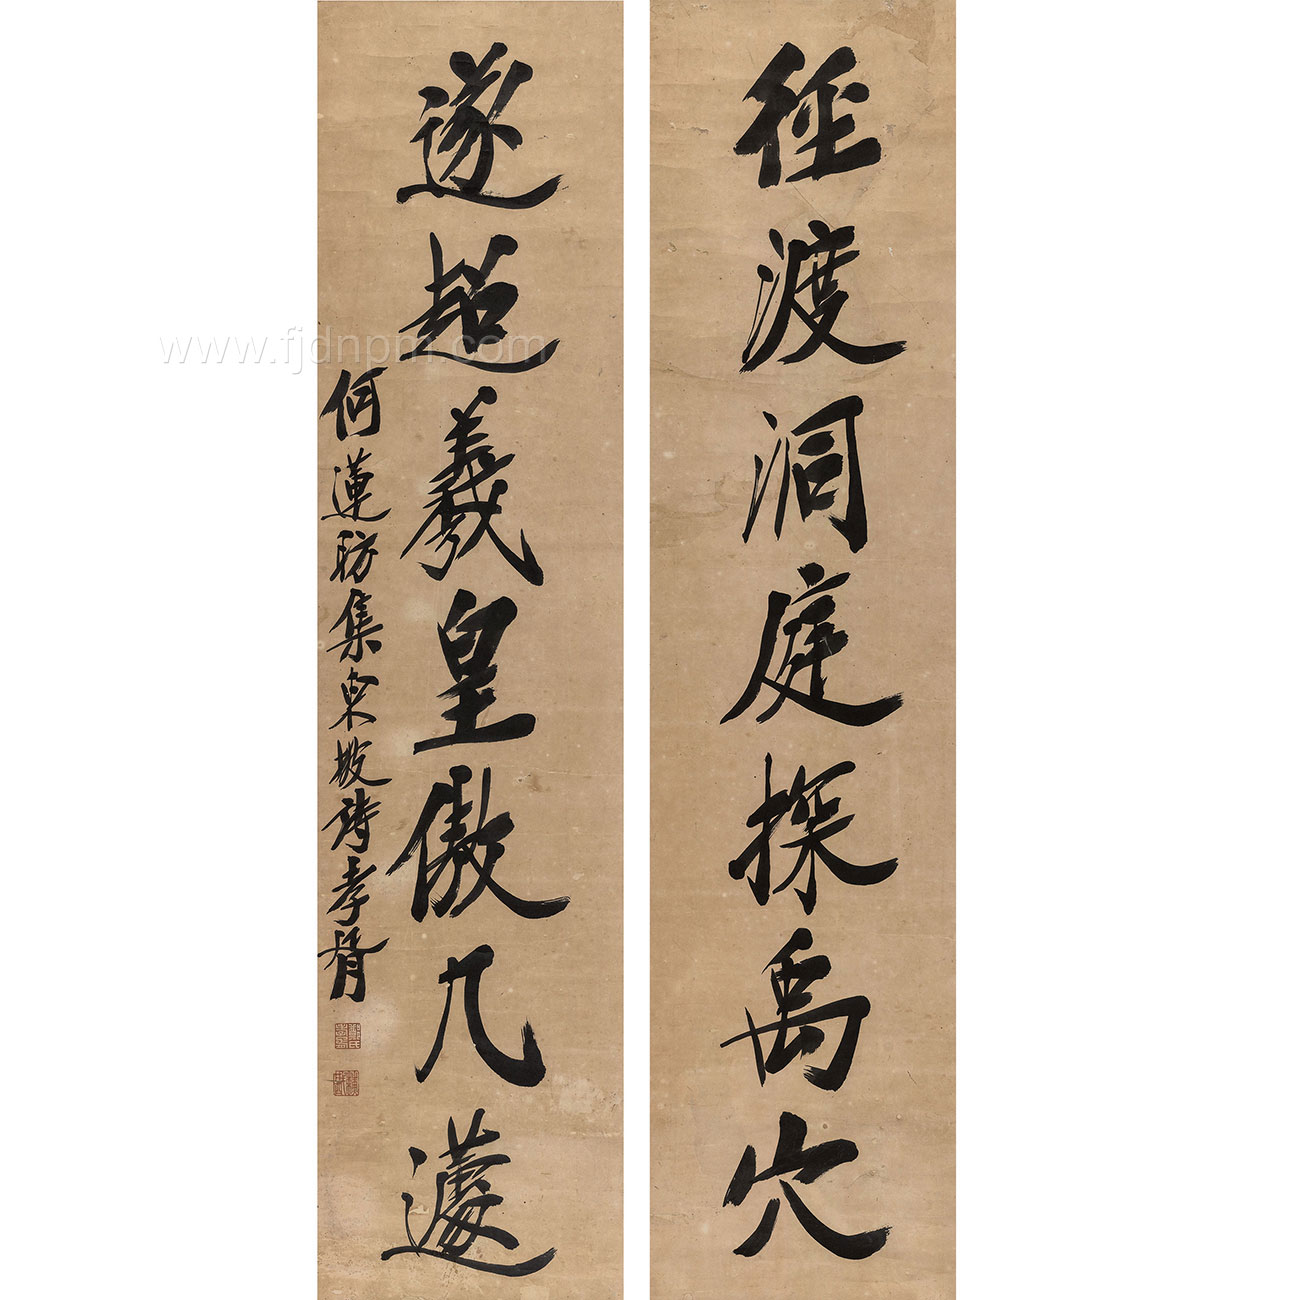 徑渡洞庭探禹穴
遂超羲皇傲几蘧
何蓮舫集東坡詩孝胥
www.fjdnpm.com